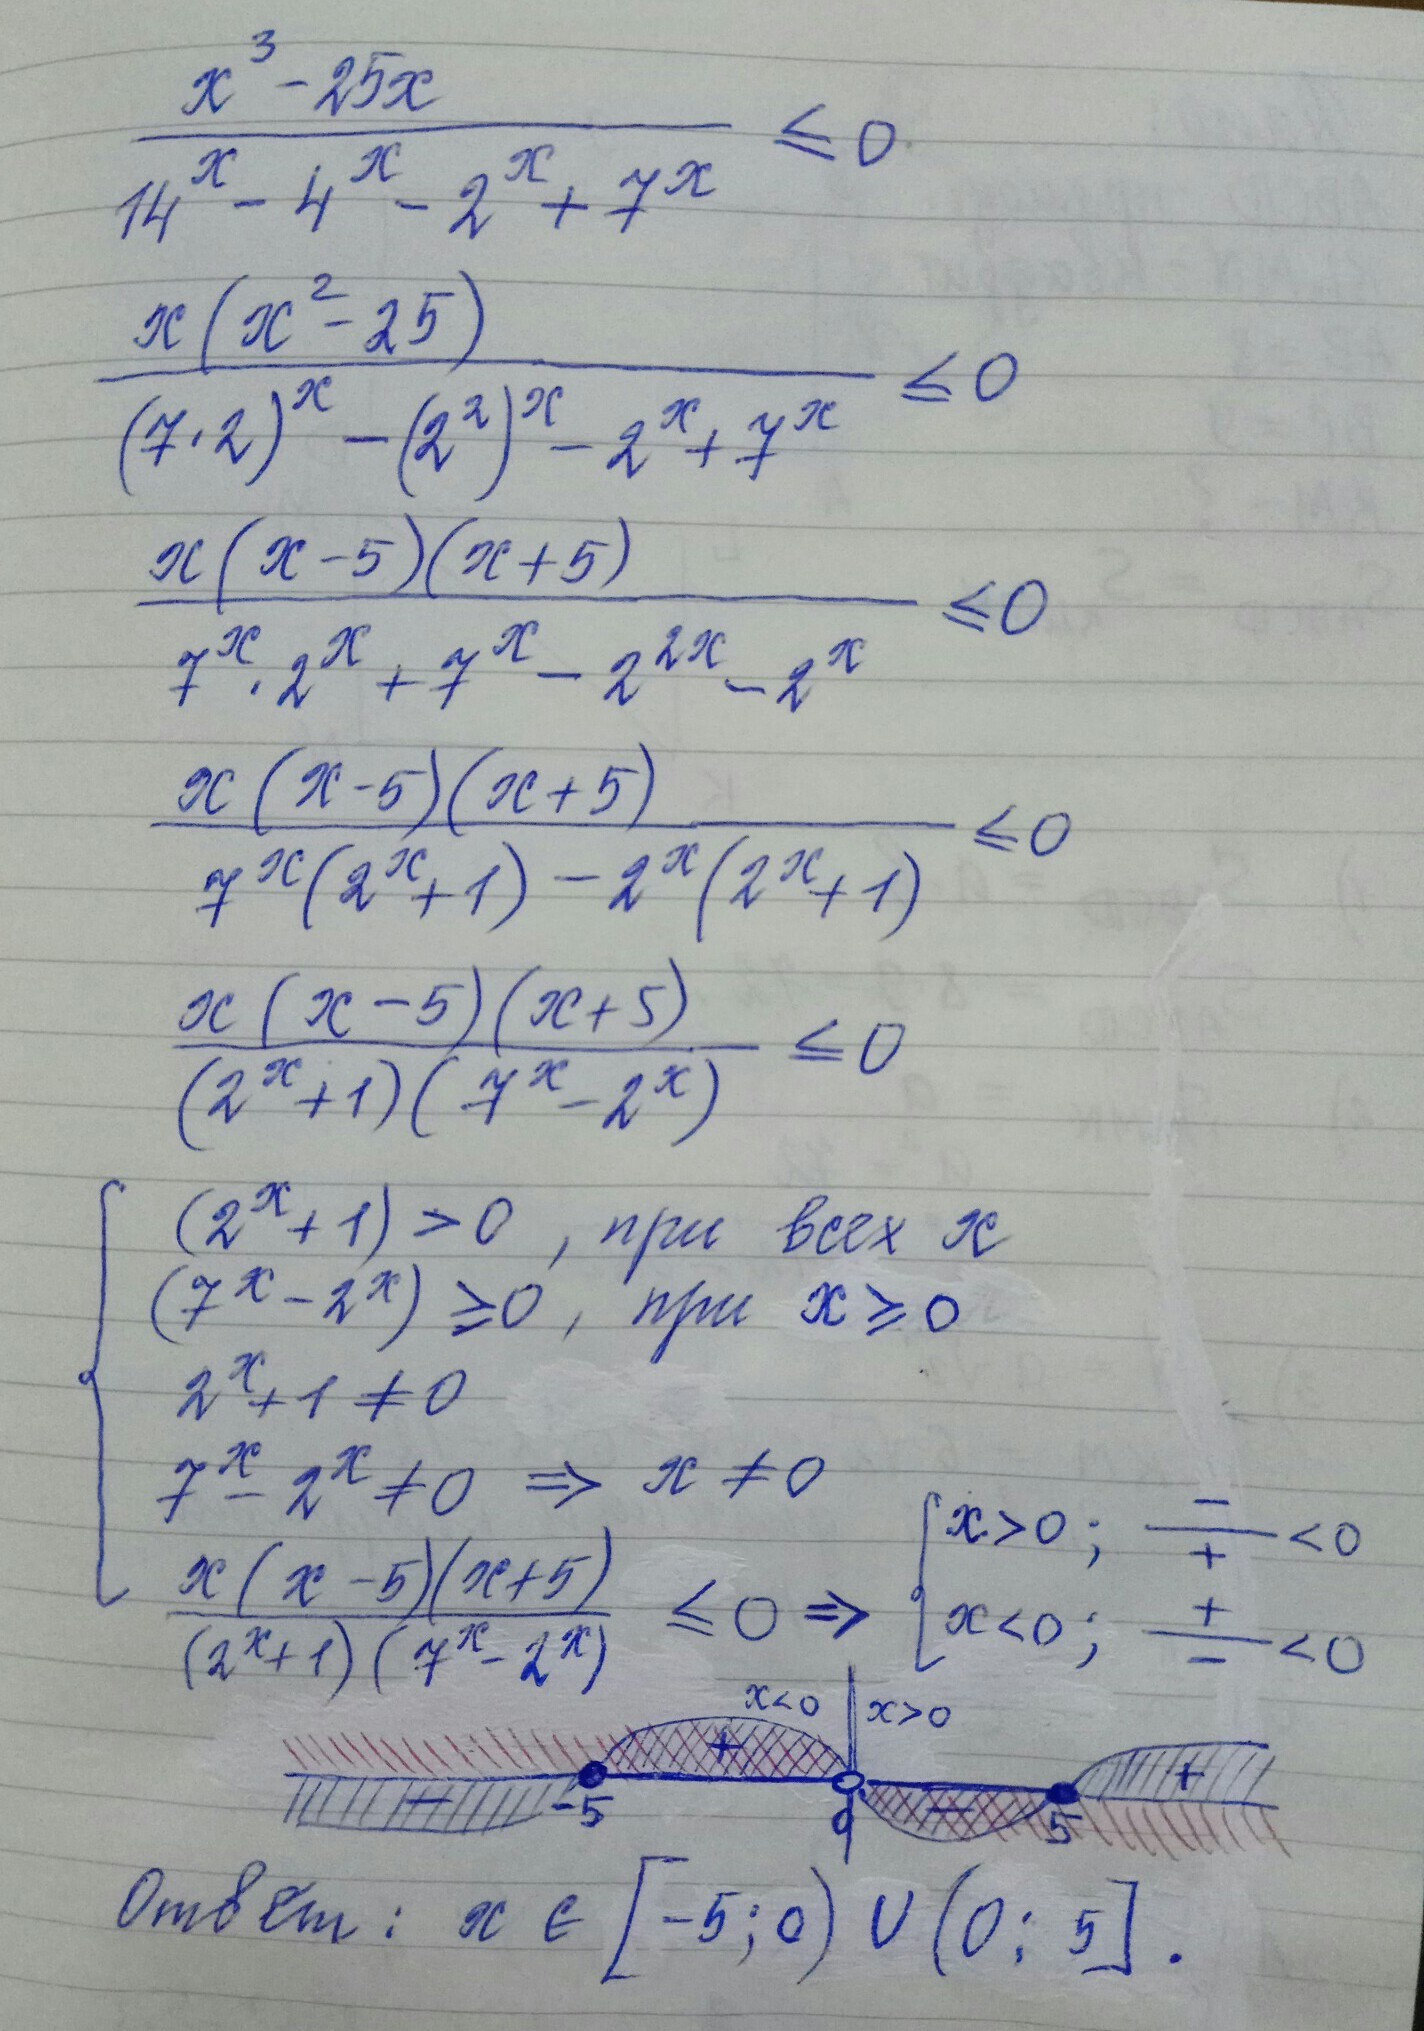 x³ - 25x
14ˣ - 4ˣ - 2ˣ + 7ˣ ≤ 0
x(x² - 25)
(7·2)ˣ - (2²)ˣ - 2ˣ + 7ˣ ≤ 0
x(x - 5)(x + 5)
7ˣ · 2ˣ + 7ˣ - 2²ˣ - 2ˣ ≤ 0
x(x - 5)(x + 5)
7ˣ(2ˣ + 1) - 2ˣ(2ˣ + 1) ≤ 0
x(x - 5)(x + 5)
(2ˣ + 1)(7ˣ - 2ˣ) ≤ 0
(2ˣ + 1) > 0, при всех x
(7ˣ - 2ˣ) ≥ 0, при x ≥ 0
2ˣ + 1 ≠ 0
7ˣ - 2ˣ ≠ 0 ⇒ x ≠ 0
x(x - 5)(x + 5)
(2ˣ + 1)(7ˣ - 2ˣ) ≤ 0 ⇒
x > 0; -/+ < 0
x < 0; +/- < 0
x<0 x>0
- + - +
-5 0 5
Ответ: x ∈ [-5; 0) ∪ (0; 5].